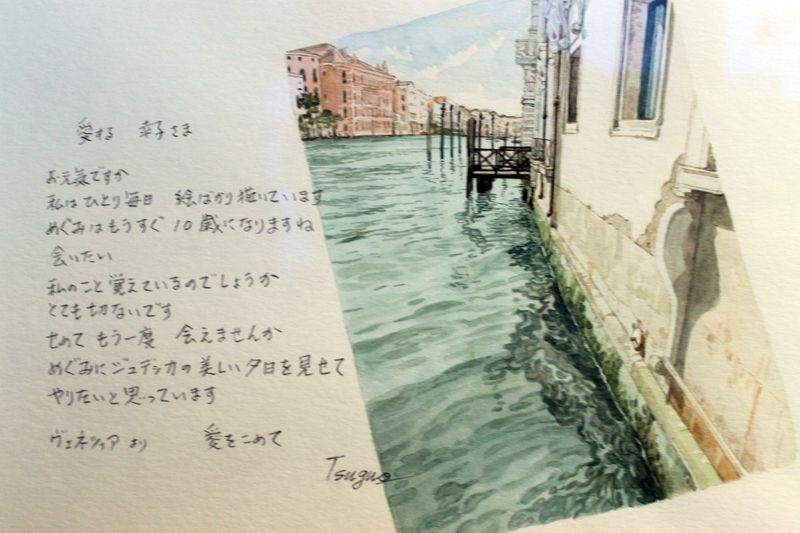 愛する 幸子さま
お元気ですか
私はひとり毎日 絵ばかり描いています
めぐみはもうすぐ 10歳になりますね
会いたい
私のこと覚えているのでしょうか
とても切ないです
せめて もう一度 会えませんか
めぐみにジュデッカの美しい夕日を見せて
やりたいと思っています
ヴェネツィアより 愛をこめて
Tsuguo